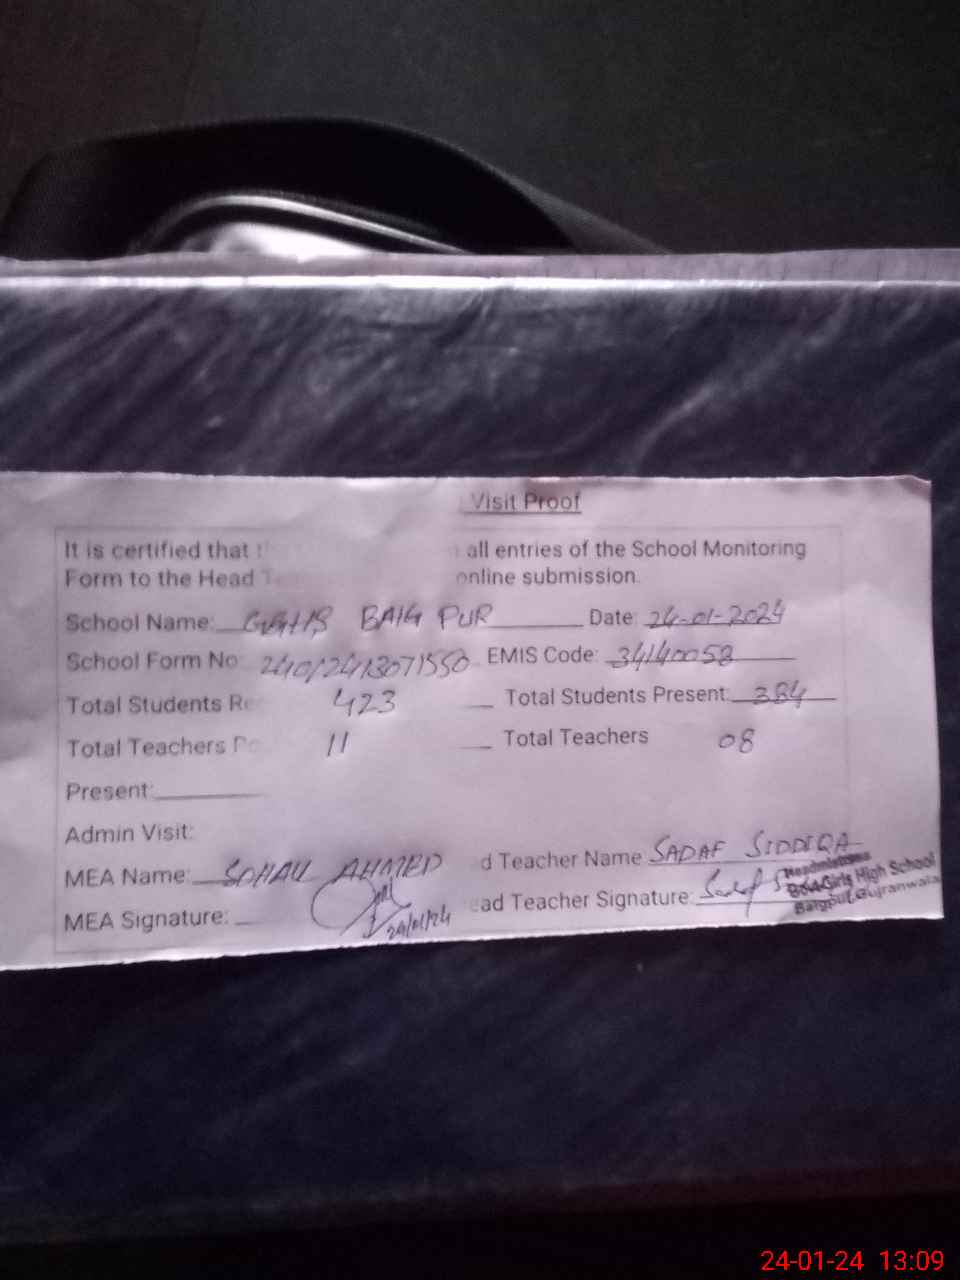 Visit Proof
It is certified that all entries of the School Monitoring
Form to the Head online submission.
School Name: GGHS BAIG PUR Date: 24-01-2024
School Form No 24012413071550 EMIS Code: 34140058
Total Students 423 Total Students Present: 384
Total Teachers 11 Total Teachers 08
Present:
Admin Visit:
MEA Name: SOHAIL AHMED d Teacher Name SADAF SIDDIQA
MEA Signature: 24/01/24 ead Teacher Signature: Sadaf S
Headmistress
Govt Girls High School
Baigpur Gujranwala
24-01-24 13:09